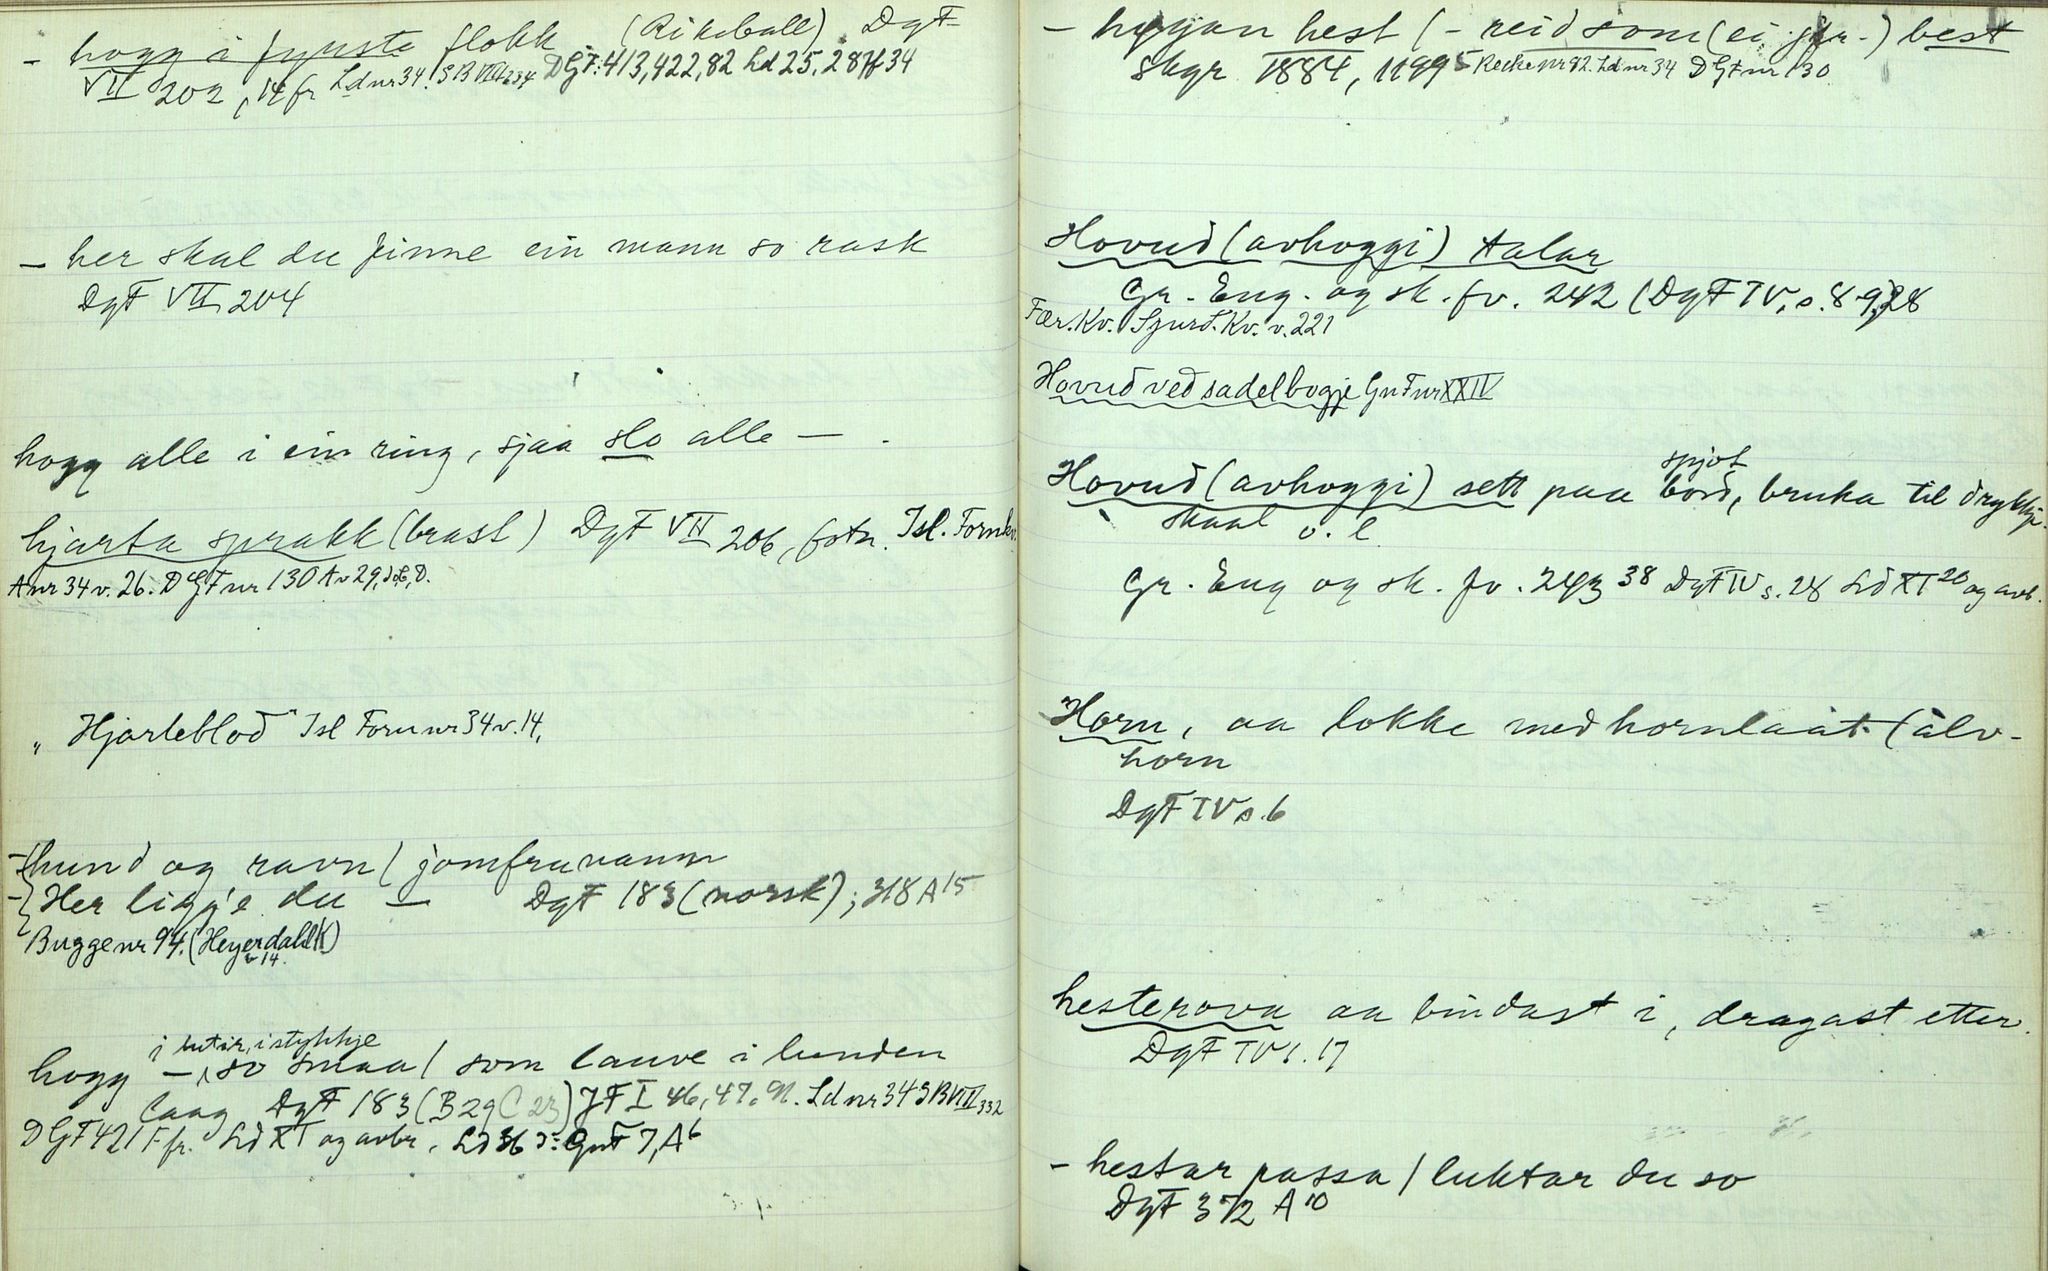 - hogg i fyrste flokk (Rikeball) DgF
VII 202, 14 fr Ld nr 34. SB VIII 234 DGF: 413, 422, 82 Ld 25, 28, 34
- her skal du finne ein mann so rask
DgF VII 204
hogg alle i ein ring, sjaa slo alle —
hjarta sprakk (brast) DgF VII 206, fotn. Isl. Fornkv.
A nr 34 v. 26. DGF nr 130 A v 29,
"Hjarteblod" Isl Forn nr 34 v. 14,
- hund og ravn / jomfrunavn
- Her ligg'e du — DgF 183 (norsk); 318 A 15
Bugge nr 94. (Heyerdahl K)
v 14.
i lutir, i stykkje
hogg — so smaa / som lauve i lunden
laag DgF 183 (B 29 C 23) JF I 46, 47, Ld nr 34 SB VIII 332
DGF 421 F fr. Ld XI og avbr. Ld 36 GnF 7, A 6
- hest (- reid som (ei ) best
skgr 1884, 1199 5 Recke nr 82. Ld nr 34 DGF nr 130
Hovud (avhoggi) talar
Gr. Eng. og sk. fv. 242 (DgF IV, s. 8 9, 28
Fær. Kv. Sjurd. Kv. v. 221
Hovud ved sadelbogje GnF nr XXIV
spjot
Hovud (avhoggi) sett paa bord, bruka til drykkje-
skaal o. l.
Gr. Eng og sk. fv. 243 38 DgF IV s. 28 Ld XI 20 og avb.
Horn, aa lokke med hornlaat (alv-
horn
DgF IV s. 6
hesterova aa bindast i, dragast etter.
DgF IV s. 17
- hestar passa / luktar du so
DgF 372 A 10